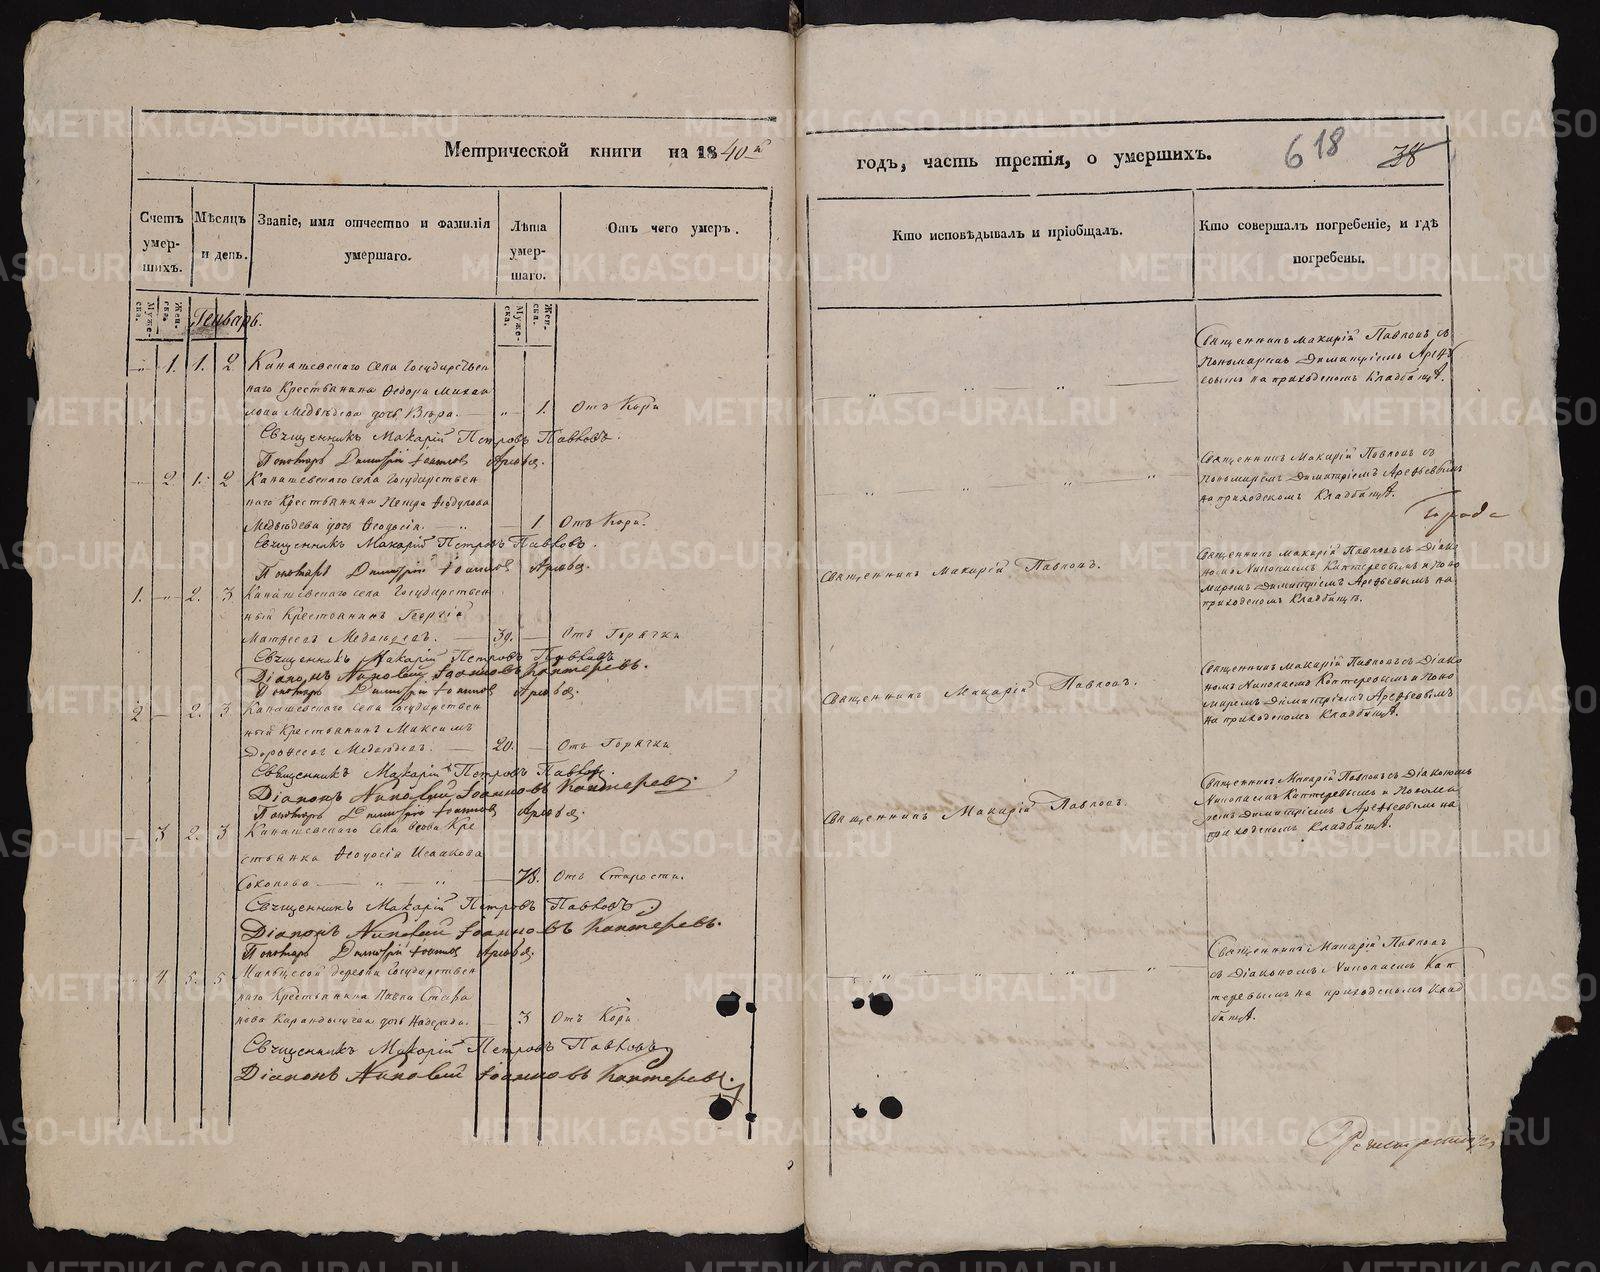 Метрической книги на 1840й
годъ, часть третія, о умершихъ.
618
38
Счетъ умер-шихъ.
Мѣсяцъ и день.
Званіе, имя отчество и фамилія умершаго.
Лѣта умер-шаго.
Отъ чего умеръ.
Кто исповѣдывалъ и пріобщалъ.
Кто совершалъ погребеніе, и гдѣ погребены.
Муже-ска.
Жен-ска.
Генварь.
Муже-ска.
Жен-ска.
1. 1. 2. Канашевскаго села Государствен
наго Крестьянина Ѳедора Михаи
лова Медвѣдева дочь Вѣра. 1. Отъ Кори
Священникъ Макарій Петровъ Павловъ.
Пономарь Димитрій Іоанновъ Арефьевъ.
Священникъ Макарій Павловъ съ
Пономаремъ Димитріемъ Арефь
евымъ на приходскомъ Кладбищѣ.
2. 1. 2 Канашевскаго села Государствен
наго Крестьянина Петра
Медвѣдева дочь Ѳеодосія. 1 Отъ Кори.
Священникъ Макарій Петровъ Павловъ.
Пономарь Димитрій Іоанновъ Арефьевъ.
Священникъ Макарій Павловъ съ
Пономаремъ Димитріемъ Арефьевымъ
на приходскомъ Кладбищѣ.
1. 2. 3 Канашевскаго села Государствен
ный Крестьянинъ Георгій
Матѳеевъ Медвѣдевъ. 39. Отъ Горячки
Священникъ Макарій Петровъ Павловъ
Діаконъ Николай Іоанновъ Каптеревъ.
Пономарь Димитрій Іоанновъ Арефьевъ.
Священникъ Макарій Павловъ.
Священникъ Макарій Павловъ съ Діако
номъ Николаемъ Каптеревымъ и Поно
маремъ Димитріемъ Арефьевымъ на
приходскомъ Кладбищѣ.
2 2. 3 Канашевскаго села Государствен
ный Крестьянинъ Максимъ
Дороѳеевъ Медвѣдевъ. 20. Отъ Горячки
Священникъ Макарій Петровъ Павловъ.
Діаконъ Николай Іоанновъ Каптеревъ.
Пономарь Димитрій Іоанновъ Арефьевъ.
Священникъ Макарій Павловъ.
Священникъ Макарій Павловъ съ Діако
номъ Николаемъ Каптеревымъ и Поно
маремъ Димитріемъ Арефьевымъ
на приходскомъ Кладбищѣ.
3 2. 3 Канашевскаго села вдова Кре
стьянка Ѳеодосія Исаакова
Соколова 78. Отъ Старости.
Священникъ Макарій Петровъ Павловъ.
Діаконъ Николай Іоанновъ Каптеревъ.
Пономарь Димитрій Іоанновъ Арефьевъ.
Священникъ Макарій Павловъ.
Священникъ Макарій Павловъ съ Діакономъ
Николаемъ Каптеревымъ и Понома
ремъ Димитріемъ Арефьевымъ на
приходскомъ Кладбищѣ.
4 5. 5 Мальцевой деревни Государствен
наго Крестьянина Павла
дочь Надежда. 3 Отъ Кори.
Священникъ Макарій Петровъ Павловъ
Діаконъ Николай Іоанновъ Каптеревъ.
Священникъ Макарій Павловъ
съ Діакономъ Николаемъ Кап
теревымъ на приходскомъ Клад
бищѣ.
METRIKI.GASO-URAL.RU